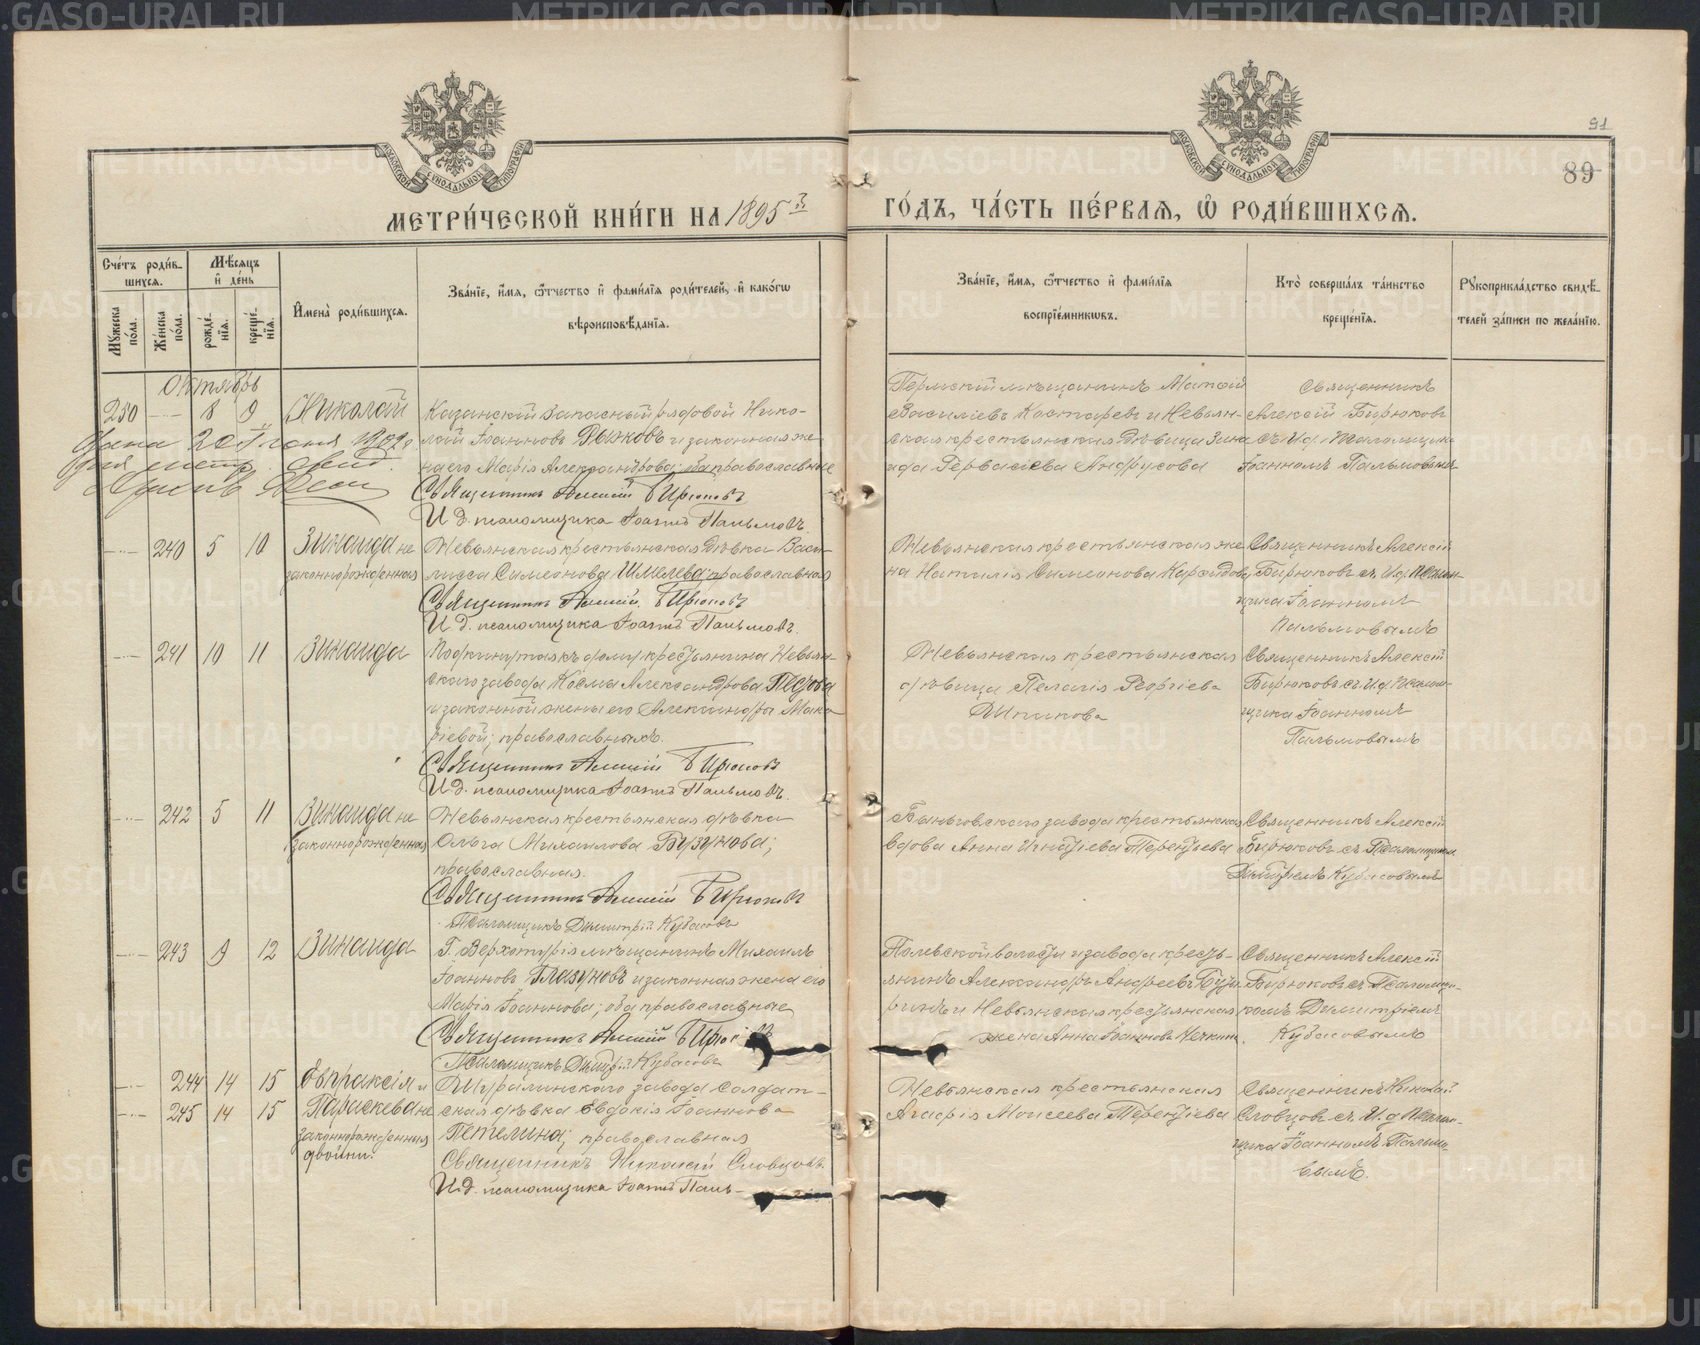 91
89
МЕТРИ́ЧЕСКОЙ КНИ́ГИ НА 1895й
ГО́ДЪ, ЧА́СТЬ ПЕ́РВАѦ, Ѿ РОДИ́ВШИХСѦ.
Сче́тъ роди́в-
шихсѧ.
Мѣ́сѧцъ
и҆ де́нь
Мꙋжеска по́ла.
Же́нска по́ла.
рожде́-
нїѧ.
креще́-
нїѧ.
И҆мена̀ роди́вшихсѧ.
Зва́нїе, и҆́мѧ, ѻ҆́тчество и҆ фами́лїѧ роди́телей, и҆ како́гѡ
вѣроисповѣ́данїѧ.
Зва́нїе, и҆́мѧ, ѻ҆́тчество и҆ фами́лїѧ
воспрїе́мникѡвъ.
Кто̀ соверша́лъ та́инство
креще́нїѧ.
Рꙋкоприкла́дство свидѣ́-
телей за́писи по жела́нїю.
Октябрь
250 8 9 Николай
Казанскій запасный рядовой Нико-
лай Іоанновъ Рыжковъ и законная же-
на его Марія Александрова; оба православные
Священникъ Алексій Бирюковъ
И. д. псаломщика Іоаннъ Пальмовъ.
Пермскій мѣщанинъ Матѳій
Василіевъ Костаревъ и Невьян-
ская крестьянская дѣвица Зина
ида Гервасіева Андрусова
Священникъ
Алексій Бирюковъ
съ И. д. псаломщика
Іоанномъ Пальмовымъ
240 5 10 Зинаида не
законнорожденная
Невьянская крестьянская дѣвка Васи-
лисса Симеонова Шмелева; православная
Священникъ Алексій Бирюковъ
И. д. псаломщика Іоаннъ Пальмовъ.
Невьянская крестьянская же
на Наталія Симеонова
Священникъ Алексій
Бирюковъ съ И. д. псалом-
щика Іоанномъ
Пальмовымъ
241 10 11 Зинаида
Подкинутая къ дому крестьянина Невьян-
скаго завода Космы Александрова
и законной жены его Александры Мака
ріевой; православныхъ.
Священникъ Алексій Бирюковъ
И. д. псаломщика Іоаннъ Пальмовъ.
Невьянская крестьянская
дѣвица Пелагія Георгіева
Шпикова
Священникъ Алексій
Бирюковъ съ И. д. псалом-
щика Іоанномъ
Пальмовымъ
242 5 11 Зинаида не
законнорожденная
Невьянская крестьянская дѣвка
Ольга Михаилова Бузунова;
православная.
Священникъ Алексій Бирюковъ
Псаломщикъ Димитрій Кубасовъ
Быньговскаго завода крестьянская
вдова Анна Игнатіева Терентьева
Священникъ Алексій
Бирюковъ съ Псаломщикомъ
Димитріемъ Кубасовымъ
243 9 12 Зинаида
Г. Верхотурія мѣщанинъ Михаилъ
Іоанновъ Глазуновъ и законная жена его
Марія Іоаннова; оба православные
Священникъ Алексій
Псаломщикъ Димитрій Кубасовъ
Полевской волости и завода кресть-
янинъ Александръ Андреевъ
и Невьянская крестьянская
жена Анна Іоаннова
Священникъ Алексій
Бирюковъ съ Псаломщи-
комъ Димитріемъ
Кубасовымъ
244 14 15 Евпраксія и
245 14 15 Параскева не
законнорожденныя
двойни.
Шуралинскаго завода солдат-
ская дѣвка Евдокія Іоаннова
Петелина; православная
Священникъ Николай Словцовъ.
И. д. псаломщика Іоаннъ Паль-
Невьянская крестьянская
Агафія Моисеева Терентіева
Священникъ Николай
Словцовъ съ И. д. Псалом-
щика Іоанномъ Пальмо-
вымъ.
METRIKI.GASO-URAL.RU